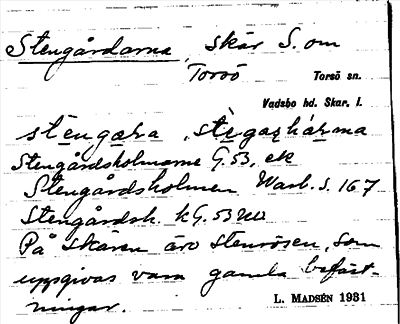 Stengårdarna, skär S. om
Torsö Torsö sn.
Vadsbo hd. Skar. l.
Stengårdsholmarne G. 53. ek
Stengårdsholmen Warb. S. 167
Stengårdsh. kG. 53
På skären äro stenrösen, som
uppgivas vara gamla befäst-
ningar. L. MADSÉN 1931